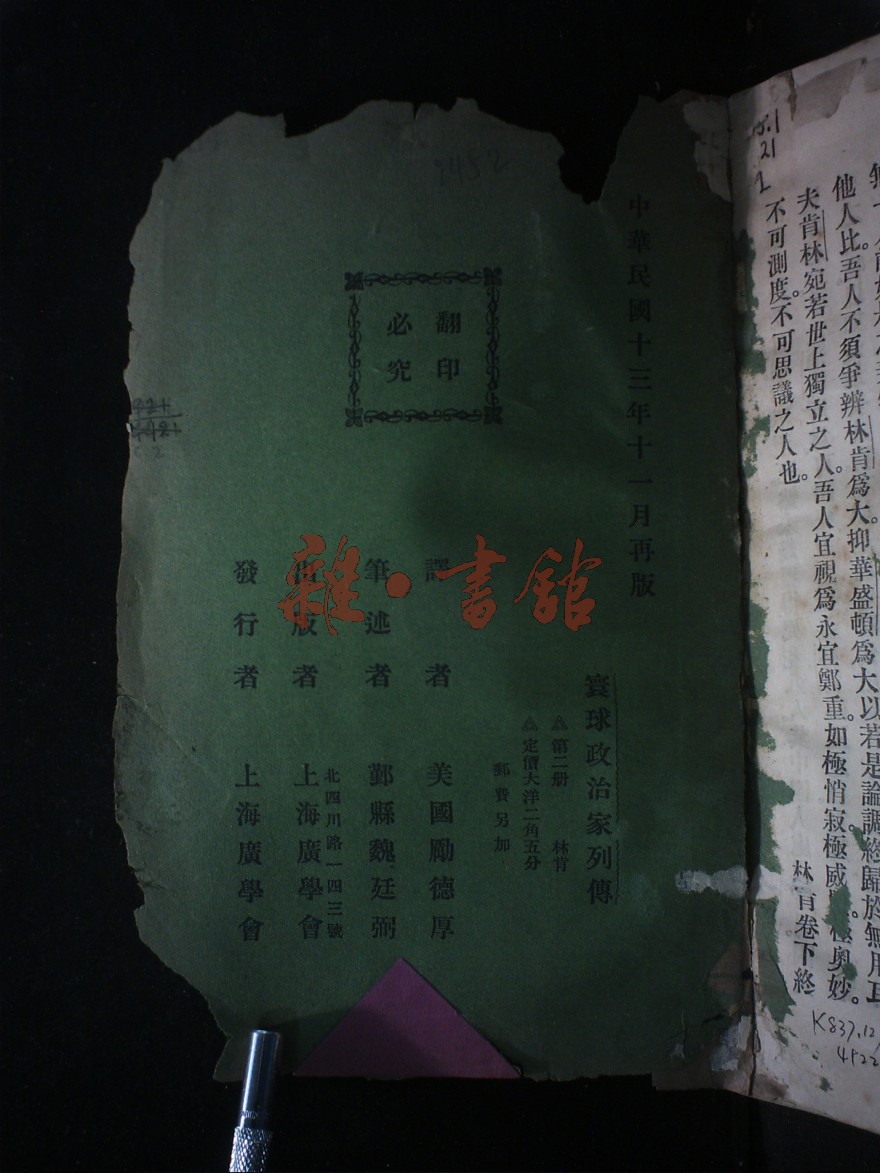 他人比。吾人不須爭辨林肯爲大。抑華盛頓爲大。以若是論調。終歸於無用耳
夫肯林宛若世上獨立之人。吾人宜視爲永宜鄭重。如極悄寂極威。極奧妙。
不可測度不可思議之人也。
林肯卷下終
21
K837.12
4822
中華民國十三年十一月再版
寰球政治家列傳
第二册 林肯
定價大洋二角五分
郵費另加
翻印
必究
2452
譯者 美國勵德厚
筆述者 鄞縣魏廷弼
出版者 北四川路一四三號
上海廣學會
發行者 上海廣學會
雜·書館